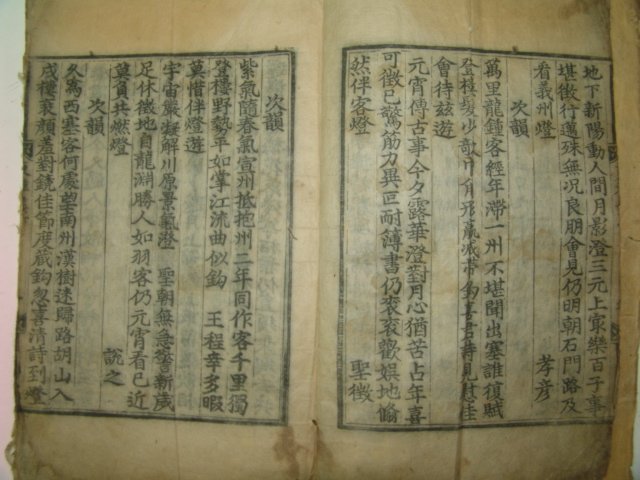 地下新陽動人間月影澄三元上宲樂百子事
堪徵行邁殊無况良朋會見仍明朝石門路及
看義州燈 孝彦
次韻
萬里龍鍾客經年滯一州不堪聞出塞誰復賦
登樓髮少歌月減帶鉤喜君詩見慰佳
會待兹遊
元宵傳古事今夕露華澄對月心猶苦占年喜
可徵已驚筋力異叵耐簿書仍衮衮歡娛地偷
然伴客燈 聖徵
次韻
紫氣隨春氣宣州抵抱州二年同作客千里獨
登樓野勢平如掌江流曲似鉤 王程幸多暇
莫惜伴燈遊
宇宙嚴凝解川原景氣澄 聖朝無急警新歲
足休徵地自龍淵勝人如羽客仍元宵看已近
莫負共燃燈 說之
次韻
久爲西塞客何處望南州漢樹迷歸路胡山入
戍樓衰顔羞對鏡佳節度藏鉤忽喜清詩到燈